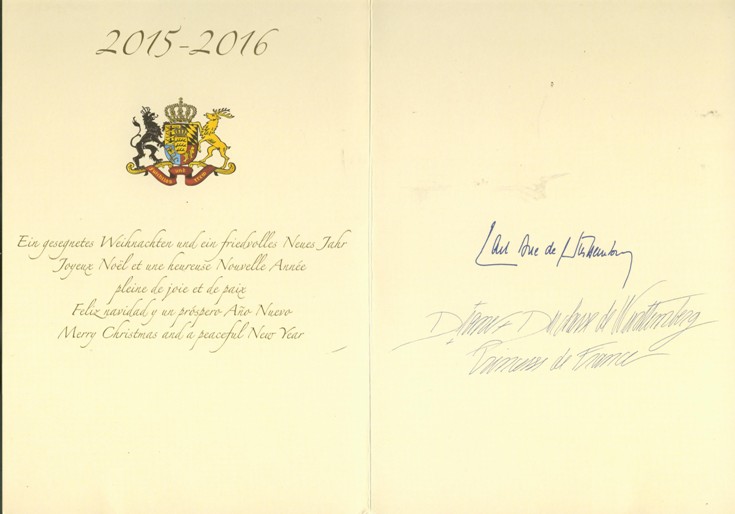 2015-2016
FURCHTLOS UND TREW
Ein gesegnetes Weihnachten und ein friedvolles Neues Jahr
Joyeux Noël et une heureuse Nouvelle Année
pleine de joie et de paix
Feliz navidad y un próspero Año Nuevo
Merry Christmas and a peaceful New Year
Carl Duc de Wurttemberg
Diane Duchesse de Wurttemberg
Princesse de France